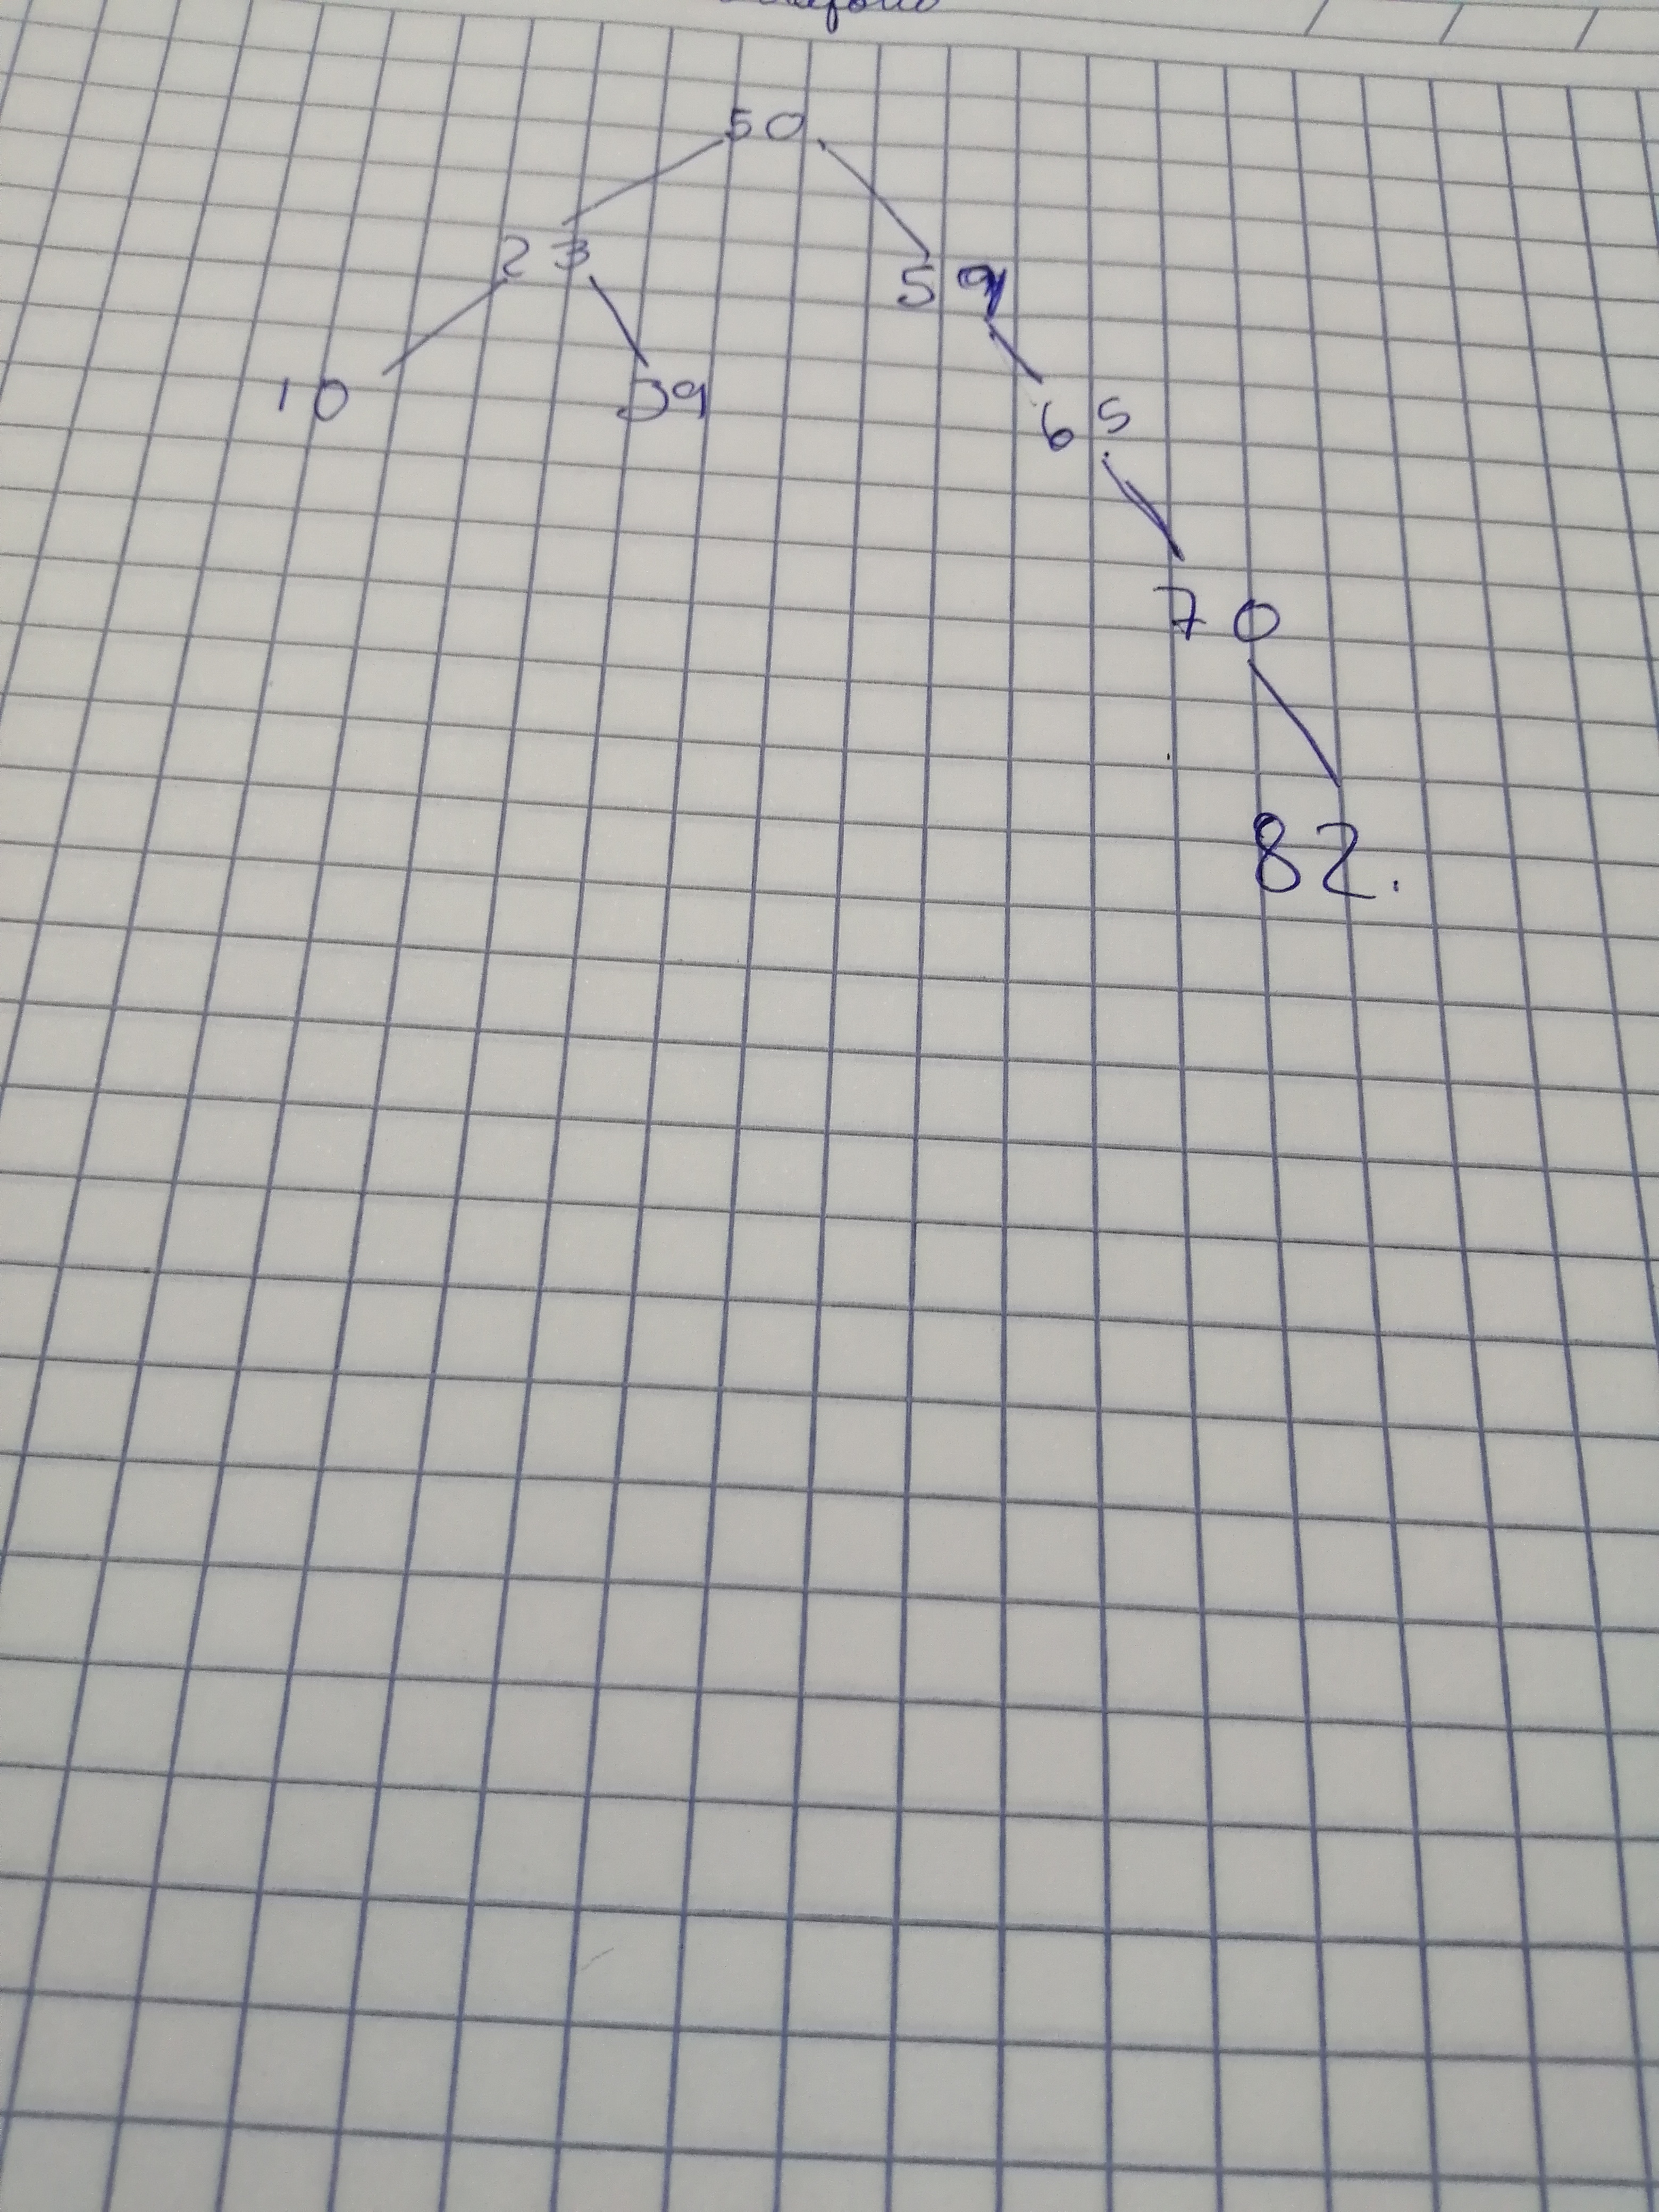 50
23 59
10 39
65
70
82.